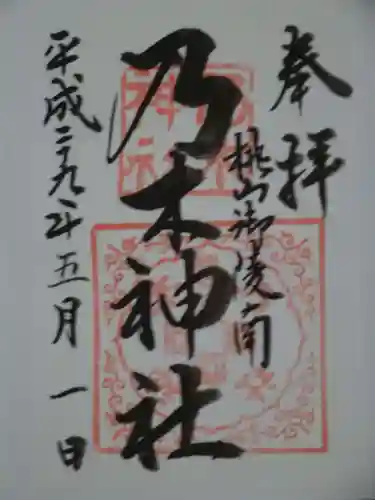 奉拝
桃山御陵南
乃木神社
平成二十九年五月一日